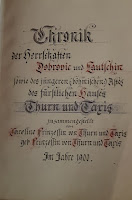 Chronik
der Herrschaften
Dobrovic und Lautschin
sowie des jüngeren (böhmischen) Astes
des fürstlichen Hauses
Thurn und Taxis
zusammengestellt
Caroline Prinzessin von Thurn und Taxis
geb Prinzessin von Thurn und Taxis
Im Jahre 1902.